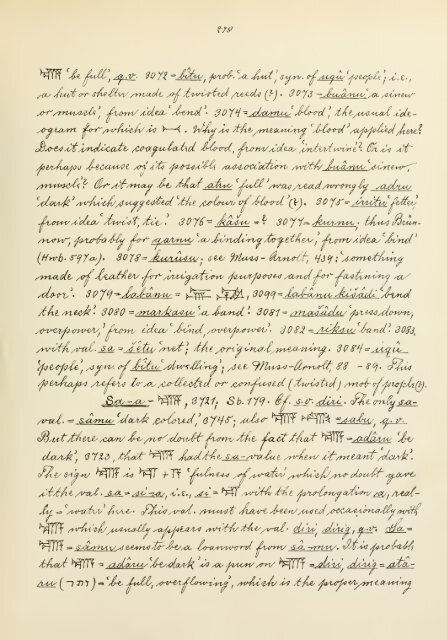 278
'be full', q.v. 3072 = bîtu, prob. 'a hut', syn. of uqû 'people', i.e.,
a hut or shelter made of twisted reeds (?). 3073 = buânu, 'a sinew
or muscle', from idea 'bend'. 3074 = damu 'blood', the usual ide-
ogram for which is . Why is the meaning 'blood' applied here?
Does it indicate coagulated blood, from idea 'intertwine'? Or is it
perhaps because of its possible association with buânu 'sinew,
muscle'? Or it may be that atru 'full' was read wrongly adru
'dark' which suggested the colour of blood (?). 3075 = 'fetter,'
from idea 'twist, tie.' 3076 = kâšu = ? 3077 = kurnu; thus Brün-
now, probably for qarnu 'a binding together', from idea 'bind'
(Hwb. 597a). 3078 = kurûsu; see Muss-Arnolt, 439; 'something
made of leather for irrigation purposes and for fastening a
door'. 3079 = labânu = , 3099 = labânu kišâdi 'bend
the neck'. 3080 = markasu 'a band'. 3081 = mašâdu 'press down,
overpower,' from idea 'bind, overpower'. 3082 = riksu 'band'. 3083,
with val. sa = šêtu 'net'; the original meaning. 3084 = uqû
'people', syn of bîtu 'dwelling'; see Muss-Arnolt, 88 - 89. This
perhaps refers to a collected or confused (twisted) mob of people(?).
Sa-a = , 3721; Sb. 179. Cf. s.v. diri. The only sa-
val. = sâmu 'dark colored,' 3745; also = sabu, q.v.
But there can be no doubt from the fact that = adâru 'be
dark', 3723, that had the sa-value when it meant 'dark'.
The sign is + 'fulness of water' which no doubt gave
it the val. sa = si-a, i.e., si = with the prolongation a, real-
ly = 'water' here. This val. must have been used occasionally with
which usually appears with the val. diri, dirig, q.v. Sa =
= sâmu seems to be a loanword from sâ-mu. It is probable
that = adâru 'be dark' is a pun on = diri, dirig = atâ-
ru (ותר) = 'be full, overflowing', which is the proper meaning